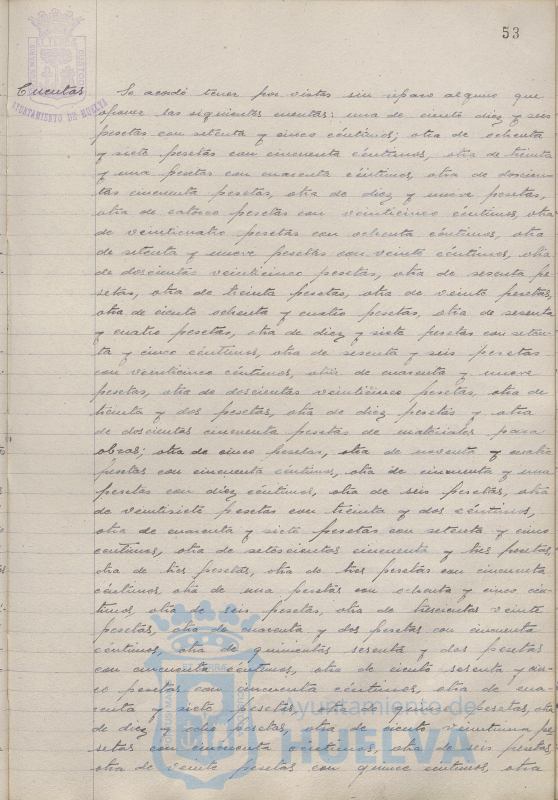 53
AYUNTAMIENTO DE HUELVA
Cuentas Se acordó tener por vistas sin reparo alguno que
oponer las siguientes cuentas: una de ciento diez y seis
pesetas con setenta y cinco céntimos; otra de ochenta
y siete pesetas con cincuenta céntimos, otra de treinta
y una pesetas con cuarenta céntimos, otra de doscien-
tas cincuenta pesetas, otra de diez y nueve pesetas,
otra de catorce pesetas con veinticinco céntimos, otra
de veinticuatro pesetas con ochenta céntimos, otra
de setenta y nueve pesetas con veinte céntimos, otra
de doscientas veinticinco pesetas, otra de sesenta pe
setas, otra de treinta pesetas, otra de veinte pesetas,
otra de ciento ochenta y cuatro pesetas, otra de sesenta
y cuatro pesetas, otra de diez y siete pesetas con seten-
ta y cinco céntimos, otra de sesenta y seis pesetas
con veinticinco céntimos, otra de cuarenta y nueve
pesetas, otra de doscientas veinticinco pesetas, otra de
treinta y dos pesetas, otra de diez pesetas y otra
de doscientas cincuenta pesetas de materiales para
obras; otra de cinco pesetas, otra de noventa y cuatro
pesetas con cincuenta céntimos, otra de cincuenta y una
pesetas con diez céntimos, otra de seis pesetas, otra
de veintisiete pesetas con treinta y dos céntimos,
otra de cuarenta y siete pesetas con setenta y cinco
centimos, otra de setescientas cincuenta y tres pesetas,
otra de tres pesetas, otra de tres pesetas con cincuenta
céntimos, otra de una pesetas con ochenta y cinco cén-
timos, otra de seis pesetas, otra de trescientas veinte
pesetas, otra de cuarenta y dos pesetas con cincuenta
céntimos, otra de quinientas sesenta y dos pesetas
con cincuenta céntimos, otra de ciento sesenta y cin-
co pesetas con cincuenta céntimos, otra de cua-
renta y siete pesetas, otra de pesetas, otra
de diez y ocho pesetas, otra de ciento veintiuna pe-
setas con cincuenta centimos, otra de seis pesetas,
otra de veinte pesetas con quince centimos, otra
Ayuntamiento de
HUELVA